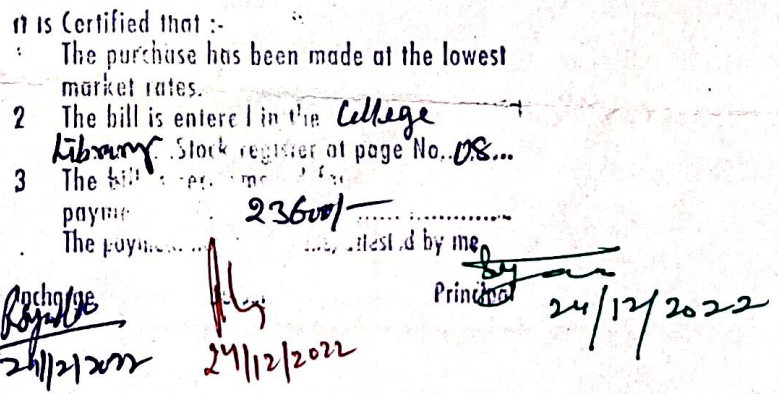 It is Certified that :-
The purchase has been made at the lowest
market rates.
2 The bill is entered in the College
Library Stock register at page No..08...
3 The bill
23600/- ...... ..............
The by me
Incharge Principal
24/12/2022 24/12/2022 24/12/2022